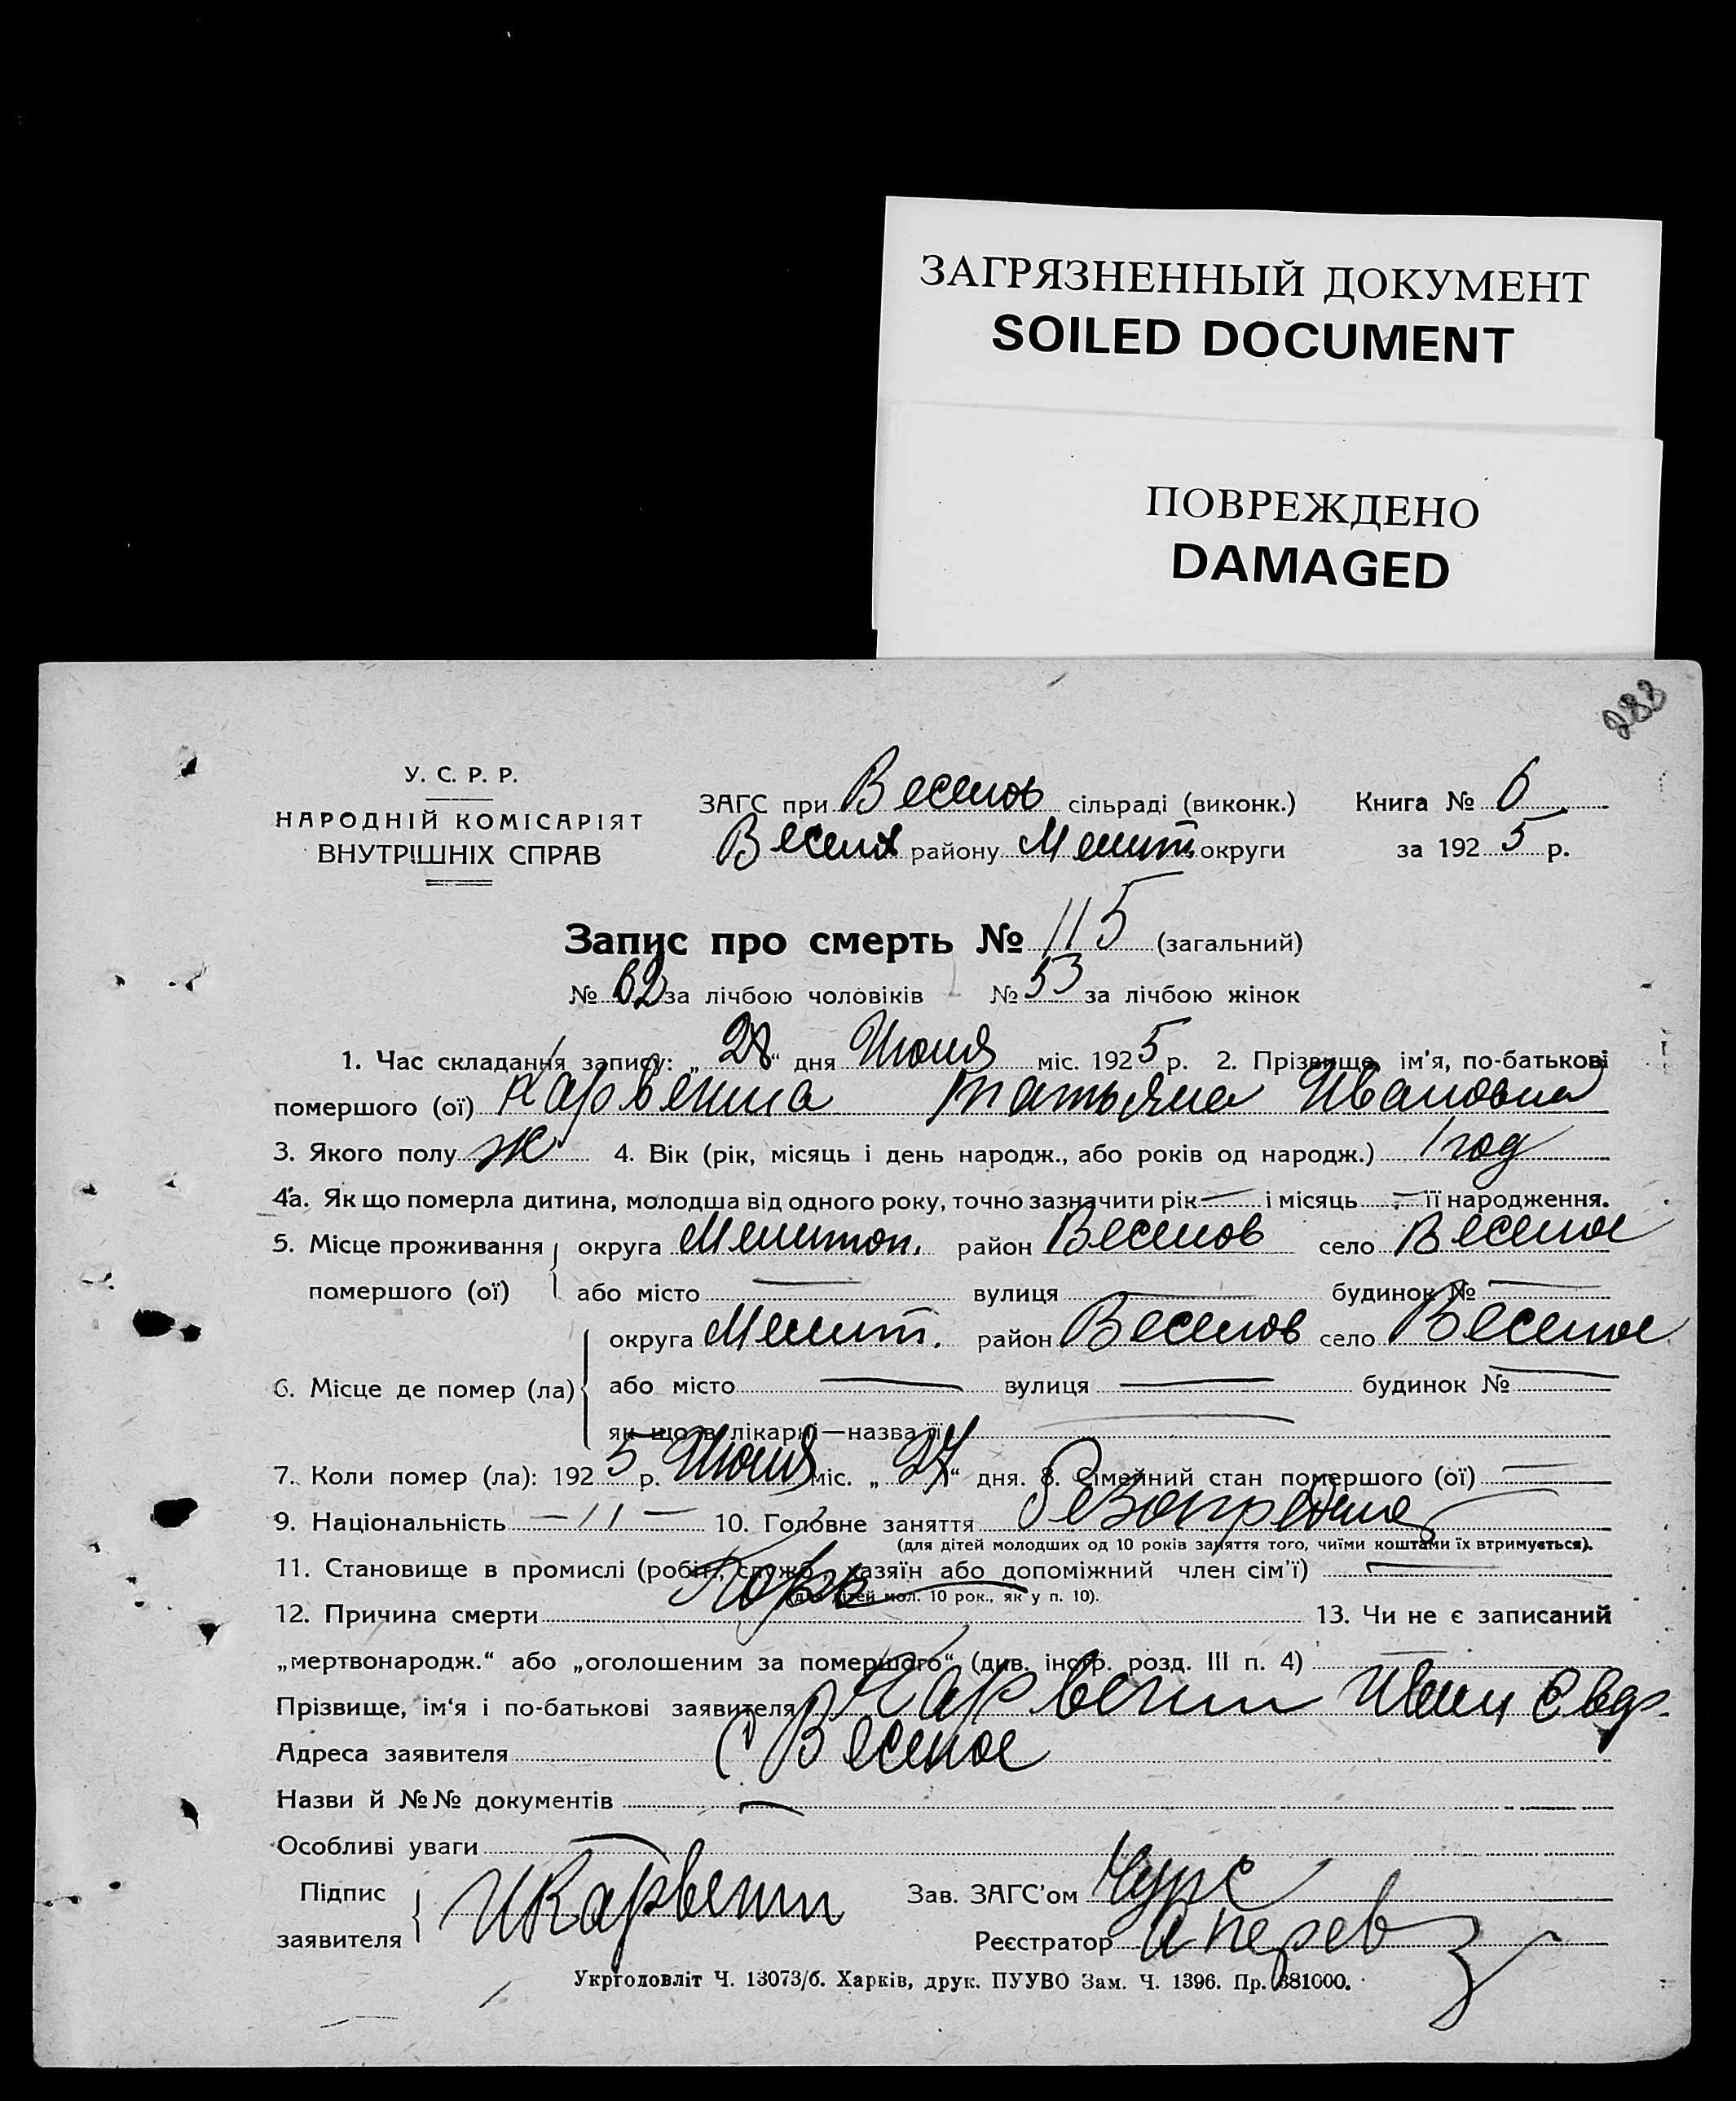 ЗАГРЯЗНЕННЫЙ ДОКУМЕНТ
SOILED DOCUMENT
ПОВРЕЖДЕНО
DAMAGED
288
У. С. Р. Р.
НАРОДНІЙ КОМІСАРІЯТ
ВНУТРІШНІХ СПРАВ
ЗАГС при Веселов сільраді (виконк.) Книга № 6
Весел району Мелит. округи за 1925 р.
Запис про смерть № 115 (загальний)
№ 62 за лічбою чоловіків № 53 за лічбою жінок
1. Час складання запису: „28“ дня Июня міс. 1925 р. 2. Прізвище, ім'я, по-батькові
помершого (ої) Татьяна Ивановна
3. Якого полу ж 4. Вік (рік, місяць і день народж., або років од народж.) 1 год
4а. Як що померла дитина, молодша від одного року, точно зазначити рік — і місяць — її народження.
5. Місце проживання округа Мелитоп. район Веселов село Веселое
помершого (ої) або місто — вулиця — будинок № —
округа Мелит. район Веселов село Веселое
6. Місце де помер (ла) або місто — вулиця — будинок № —
як що в лікарні—назва її —
7. Коли помер (ла): 1925 р. Июня міс. „27“ дня. 8. Сімейний стан помершого (ої) —
9. Національність —11— 10. Головне заняття
(для дітей молодших од 10 років заняття того, чиїми коштами їх втримується).
11. Становище в промислі (робітн., служб., хазяїн або допоміжний член сім'ї) —
(для дітей мол. 10 рок., як у п. 10).
12. Причина смерти Корь 13. Чи не є записаний
„мертвонародж.“ або „оголошеним за помершого“ (див. інстр. розд. III п. 4) —
Прізвище, ім'я і по-батькові заявителя Иван
Адреса заявителя С Веселое
Назви й №№ документів —
Особливі уваги —
Підпис
заявителя
Зав. ЗАГС'ом
Реєстратор
Укрголовліт Ч. 13073/б. Харків, друк. ПУУВО Зам. Ч. 1396. Пр. 381000.